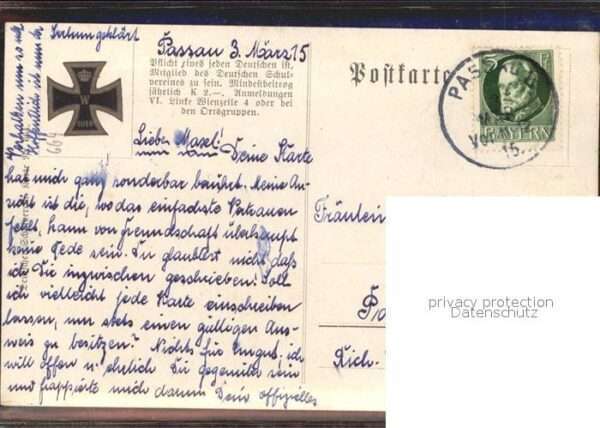 Passau 3. März 15
Pflicht eines jeden Deutschen ist,
Mitglied des Deutschen Schul-
vereines zu sein. Mindestbeitrag
jährlich K 2.—. Anmeldungen
VI. Linke Wienzeile 4 oder bei
den Ortsgruppen.
Postkarte
BAYERN
15.
Liebe Masel! Deine Karte
hat mich ganz sonderbar berührt. Meine An-
sicht ist die, wo das einfachste Vertrauen
fehlt, kann von Freundschaft überhaupt
keine Rede sein. Du glaubst nicht, daß
ich Dir inzwischen geschrieben! Soll
ich vielleicht jede Karte einschreiben
lassen, um stets einen gültigen Aus-
weis zu besitzen? Nichts für ungut, ich
will offen u. ehrlich Dir gegenüber sein
und frappierte mich darum Dein offizielles
Verhalten um so mehr
Hoffentlich ist nun der
664
Fräulein
Pa
Rich-
privacy protection
Datenschutz